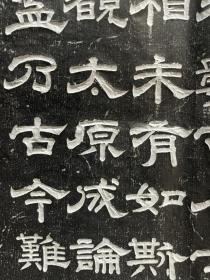 相未有如斯
觀太原成論
乃古今難